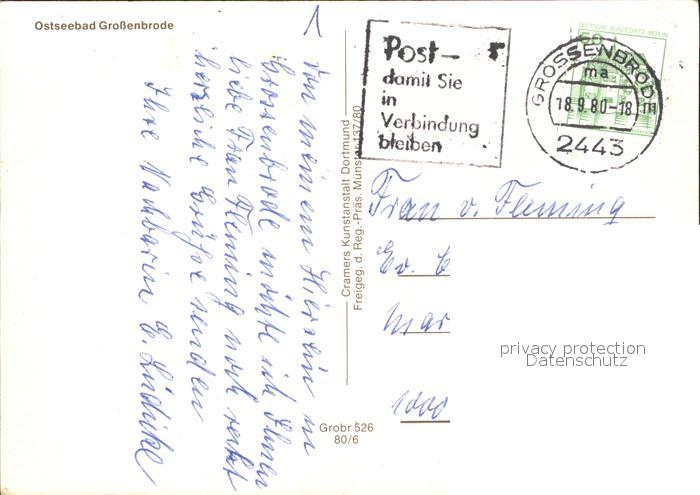 Ostseebad Großenbrode
Von meinem Hiersein in
Grossenbrode möchte ich Ihnen
liebe Frau Fleming noch recht
herzliche Grüße senden
Ihre Nachbarin E. Lüdicke
Cramers Kunstanstalt Dortmund
Freigeg. d. Reg.-Präs. Münster 137/80
Grobr 526
80/6
Post-
damit Sie
in
Verbindung
bleiben
DEUTSCHE BUNDESPOST BERLIN
GROSSENBRODE
ma
18.9.80-18
2443
Frau v. Fleming
1000
privacy protection
Datenschutz